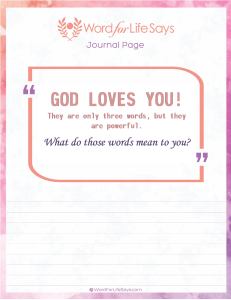 Word for Life Says
Journal Page
“
GOD LOVES YOU!
They are only three words, but they
are powerful.
What do those words mean to you?
”
WordForLifeSays.com